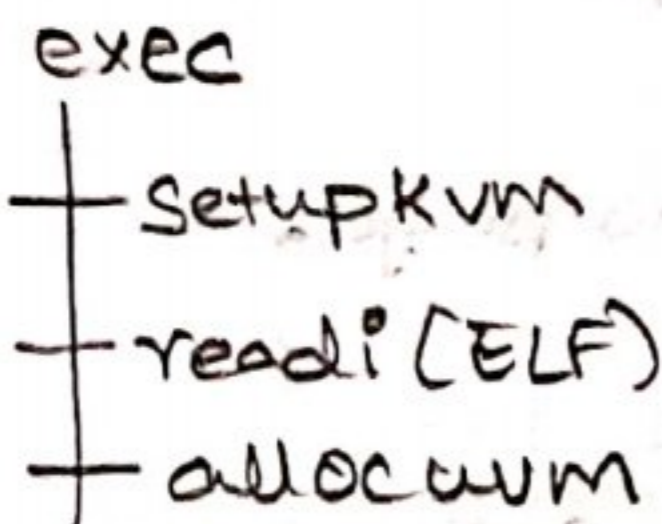 exec
setupkvm
readi (ELF)
allocuvm